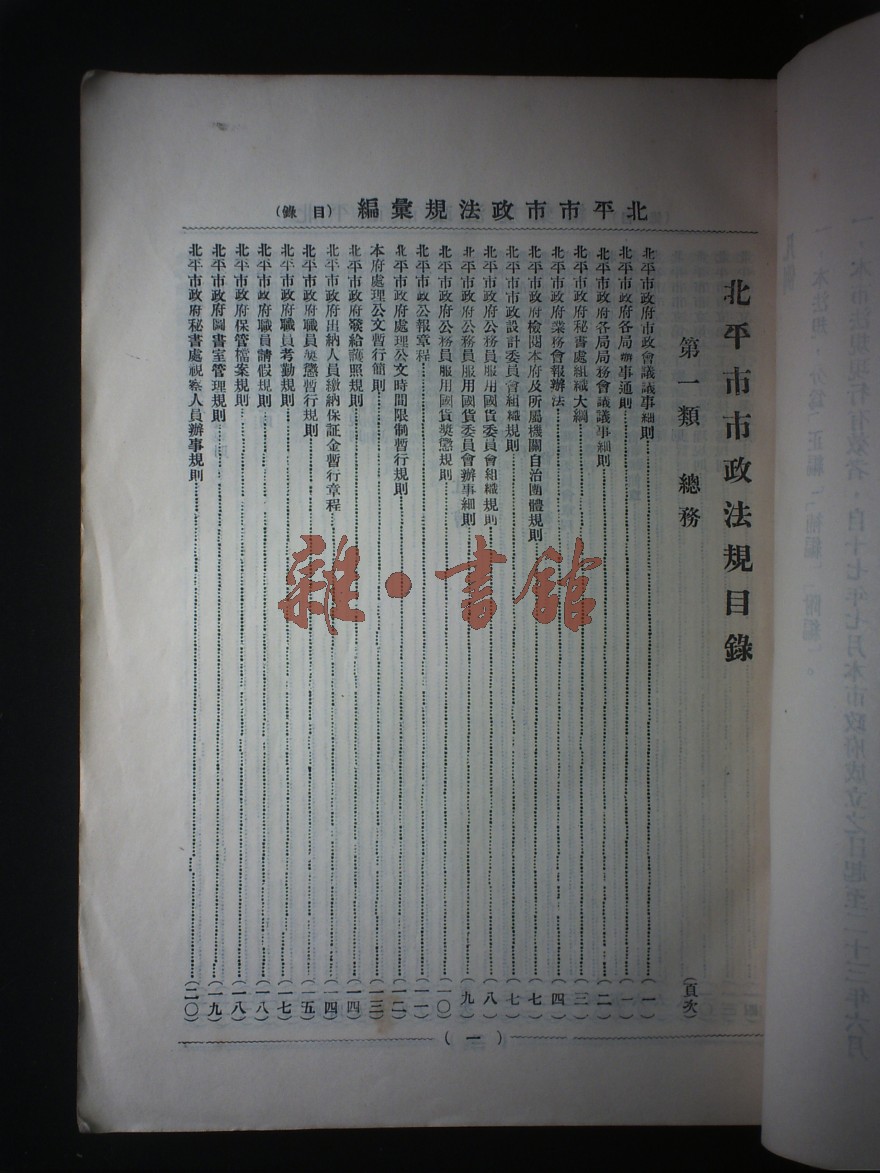 北平市市政法規彙編 (目錄)
北平市市政法規目錄
第一類 總務 (頁次)
北平市政府市政會議議事細則 (一)
北平市政府各局辦事通則 (一)
北平市政府各局局務會議議事細則 (二)
北平市政府秘書處組織大綱 (三)
北平市政府業務會報辦法 (四)
北平市政府檢閱本府及所屬機關自治團體規則 (七)
北平市市政設計委員會組織規則 (七)
北平市政府公務員服用國貨委員會組織規則 (八)
北平市政府公務員服用國貨委員會辦事細則 (九)
北平市政府公務員服用國貨奬懲規則 (一〇)
北平市政公報章程 (一一)
北平市政府處理公文時間限制暫行規則 (一二)
本府處理公文暫行簡則 (一三)
北平市政府發給護照規則 (一四)
北平市政府出納人員繳納保証金暫行章程 (一四)
北平市政府職員奬懲暫行規則 (一五)
北平市政府職員考勤規則 (一七)
北平市政府職員請假規則 (一八)
北平市政府保管檔案規則 (一八)
北平市政府圖書室管理規則 (一九)
北平市政府秘書處視察人員辦事規則 (二〇)
(一)
雜·書館